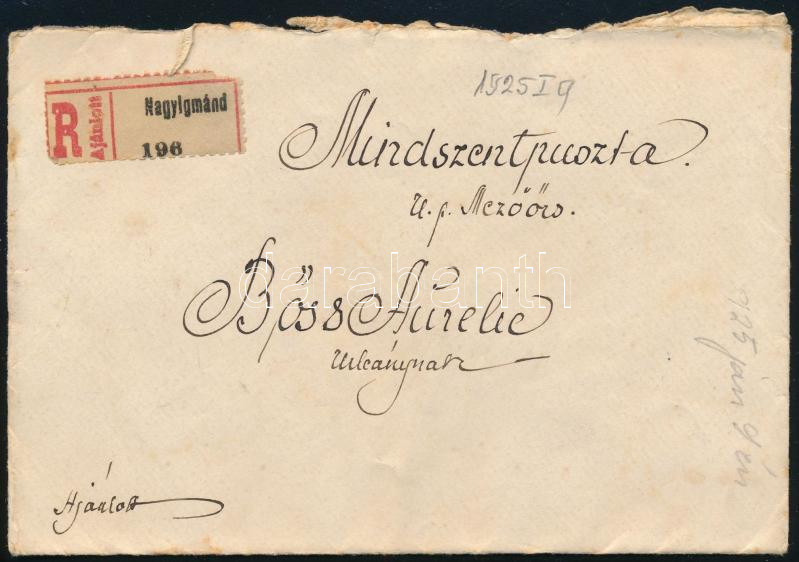 R Ajánlott
Nagyigmánd
196
1925 I 9
Mindszentpuszta.
U. p. Mezőörs.
Böss Aurelie
Urleánynak
Ajánlott
925 jan 9 én
darabanth